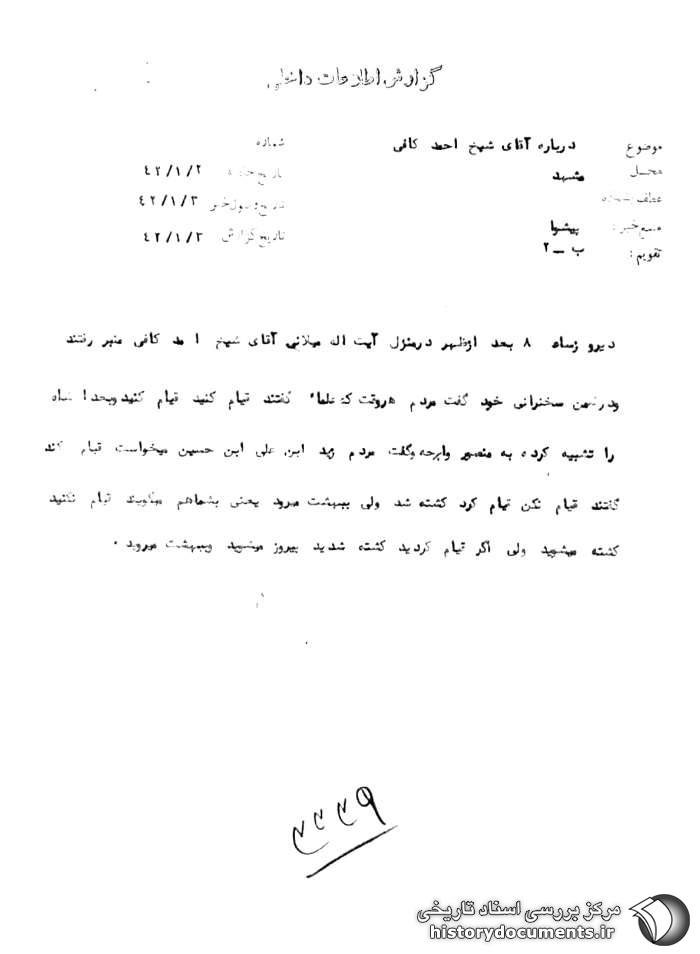 گزارش اطلاعات داخلی
موضوع درباره آقای شیخ احمد کافی
شماره
محل مشهد
تاریخ ۴۲/۱/۲
عطف بشماره
تاریخ وصول خبر ۴۲/۱/۳
منبع خبر: پیشوا
تاریخ گزارش ۴۲/۱/۳
تقویم: ب ـ ۲
دیروز ساعت ۸ بعد ازظهر درمنزل آیت اله میلانی آقای شیخ احمد کافی منبر رفتند
ودرضمن سخنرانی خود گفت مردم هروقت که علماء گفتند قیام کنید قیام کنید وبعد
را تشبیه کرده به منصور وابرحه وگفت مردم زید ابن علی ابن حسین میخواست قیام کند
گفتند قیام نکن قیام کرد کشته شد ولی ببهشت میرود یعنی بشماهم میگویند قیام نکنید
کشته میشوید ولی اگر قیام کردید کشته شدید پیروز میشوید وببهشت میروید .
مرکز بررسی اسناد تاریخی
historydocuments.ir